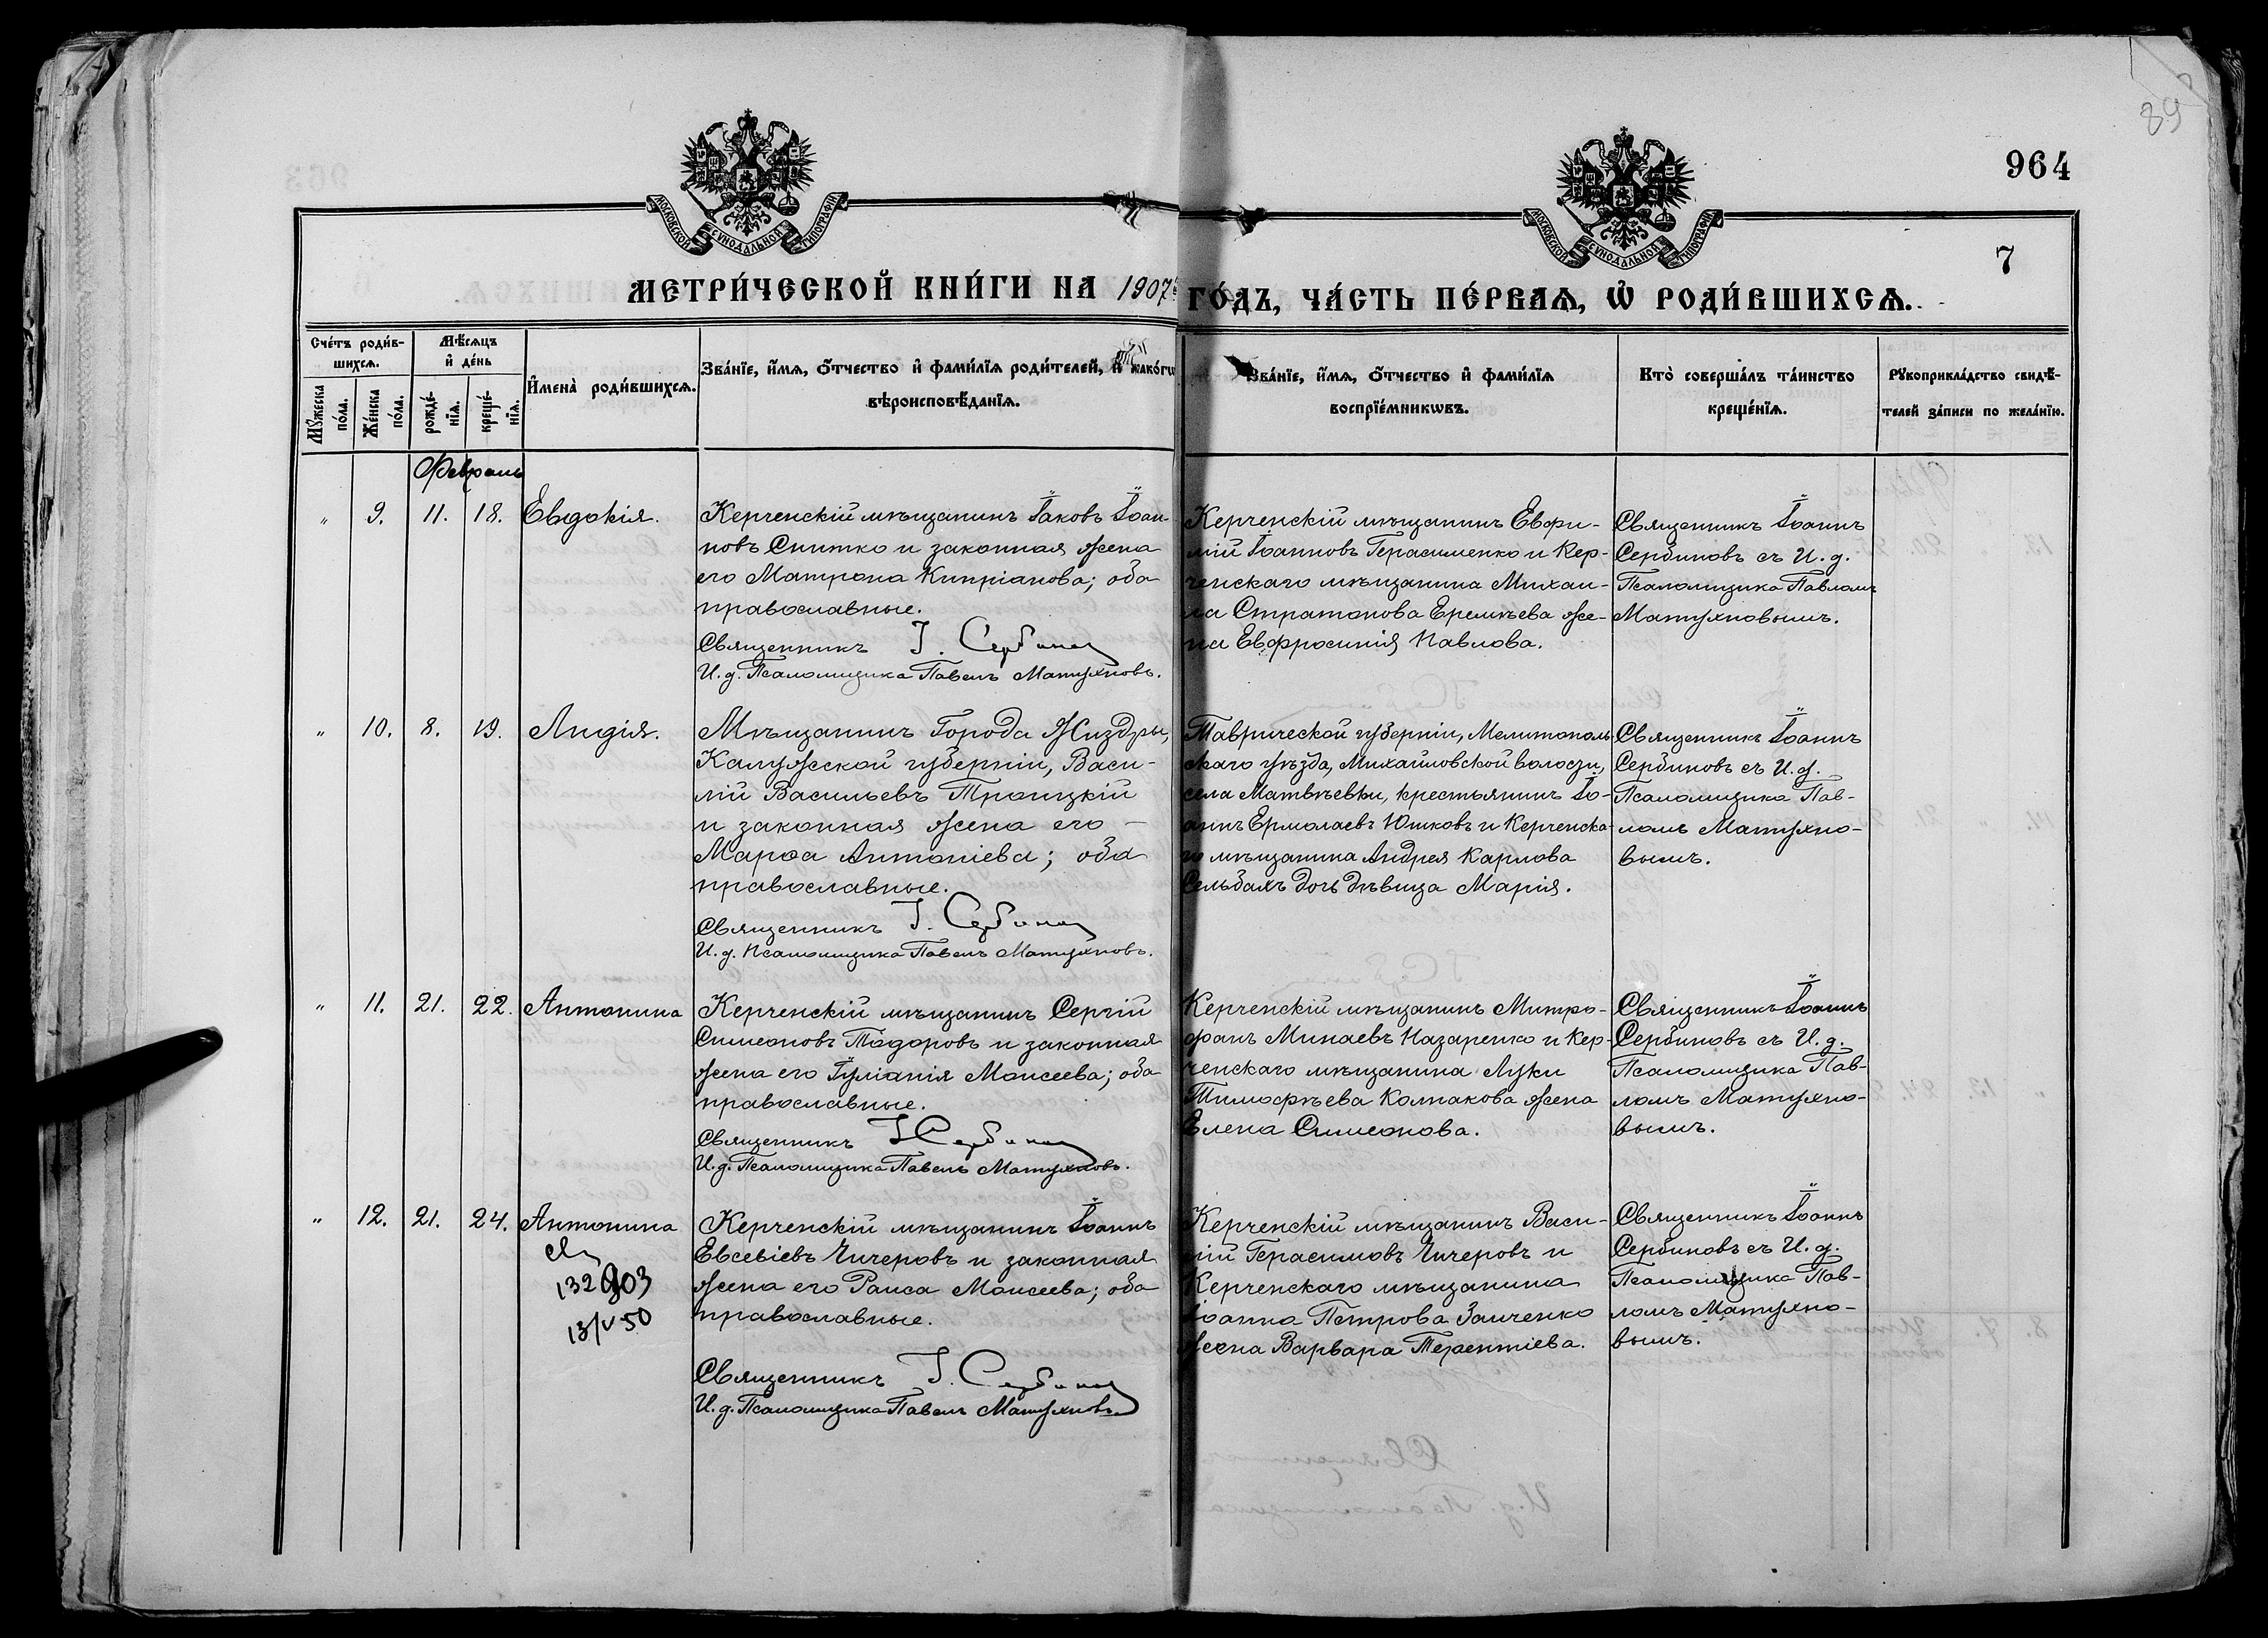 89
964
7
МОСКОВСКОЙ СѴНОДАЛЬНОЙ ТИПОГРАФІИ
МОСКОВСКОЙ СѴНОДАЛЬНОЙ ТИПОГРАФІИ
МЕТРИ́ЧЕСКОЙ КНИ́ГИ НА 1907й ГО́ДЪ, ЧА́СТЬ ПЕ́РВАѦ, Ѡ҆ РОДИ́ВШИХСѦ.
Сче́тъ роди́в-
шихсѧ.
Мꙋ́жеска
по́ла.
Же́нска
по́ла.
Мѣ́сѧцъ
и҆ де́нь
рожде́-
нїѧ.
креще́-
нїѧ.
И҆мена̀ роди́вшихсѧ.
Зва́нїе, и҆́мѧ, ѻ҆́тчество и҆ фами́лїѧ роди́телей, и҆ како́гѡ
вѣроисповѣ́данїѧ.
Зва́нїе, и҆́мѧ, ѻ҆́тчество и҆ фами́лїѧ
воспрїе́мникѡвъ.
Кто̀ соверша́лъ та́инство
креще́нїѧ.
Рꙋкоприкла́дство свидѣ́-
телей за́писи по жела́нїю.
Февраль
" 9. 11. 18. Евдокія.
Керченскій мѣщанинъ Іаковъ Іоан-
новъ Снитко и законная жена
его Матрона Кипріанова; оба
православные.
Священникъ І. Сербинов
И. д. Псаломщика Павелъ Матухновъ.
Керченскій мѣщанинъ Евфи-
мій Іоанновъ Герасименко и Кер-
ченскаго мѣщанина Михаи-
ла Стратонова Еремѣева же-
на Евфросинія Павлова.
Священникъ Іоаннъ
Сербиновъ съ И. д.
Псаломщика Павломъ
Матухновымъ.
" 10. 8. 19. Лидія.
Мѣщанинъ Города Жиздры,
Калужской губерніи, Васи-
лій Васильевъ Троицкій
и законная жена его –
Марѳа Антоніева; оба
православные.
Священникъ І. Сербинов
И. д. Псаломщика Павелъ Матухновъ.
Таврической губерніи, Мелитополь-
скаго уѣзда, Михайловской волости,
села Матвѣевки, крестьянинъ Іо-
аннъ Ермолаевъ Юшковъ и Керченска-
го мѣщанина Андрея Карлова
Сельбахъ дочь дѣвица Марія.
Священникъ Іоаннъ
Сербиновъ съ И. д.
Псаломщика Пав-
ломъ Матухно-
вымъ.
" 11. 21. 22. Антонина
Керченскій мѣщанинъ Сергій
Симеоновъ Тодоровъ и законная
жена его Іуліанія Моисеева; оба
православные.
Священникъ І Сербинов
И. д. Псаломщика Павелъ Матухновъ.
Керченскій мѣщанинъ Митро-
фанъ Минаевъ Назаренко и Кер-
ченскаго мѣщанина Луки
Тимофѣева Колпакова жена
Елена Симеонова.
Священникъ Іоаннъ
Сербиновъ съ И. д.
Псаломщика Пав-
ломъ Матухно-
вымъ.
" 12. 21. 24. Антонина
132903
13/V 50
Керченскій мѣщанинъ Іоаннъ
Евсевіевъ Чичеровъ и законная
жена его Раиса Моисеева; оба
православные.
Священникъ І. Сербинов
И. д. Псаломщика Павелъ Матухновъ
Керченскій мѣщанинъ Васи-
лій Герасимовъ Чичеровъ и
Керченскаго мѣщанина
Іоанна Петрова Заиченко
жена Варвара Терентіева.
Священникъ Іоаннъ
Сербиновъ съ И. д.
Псаломщика Пав-
ломъ Матухно-
вымъ.